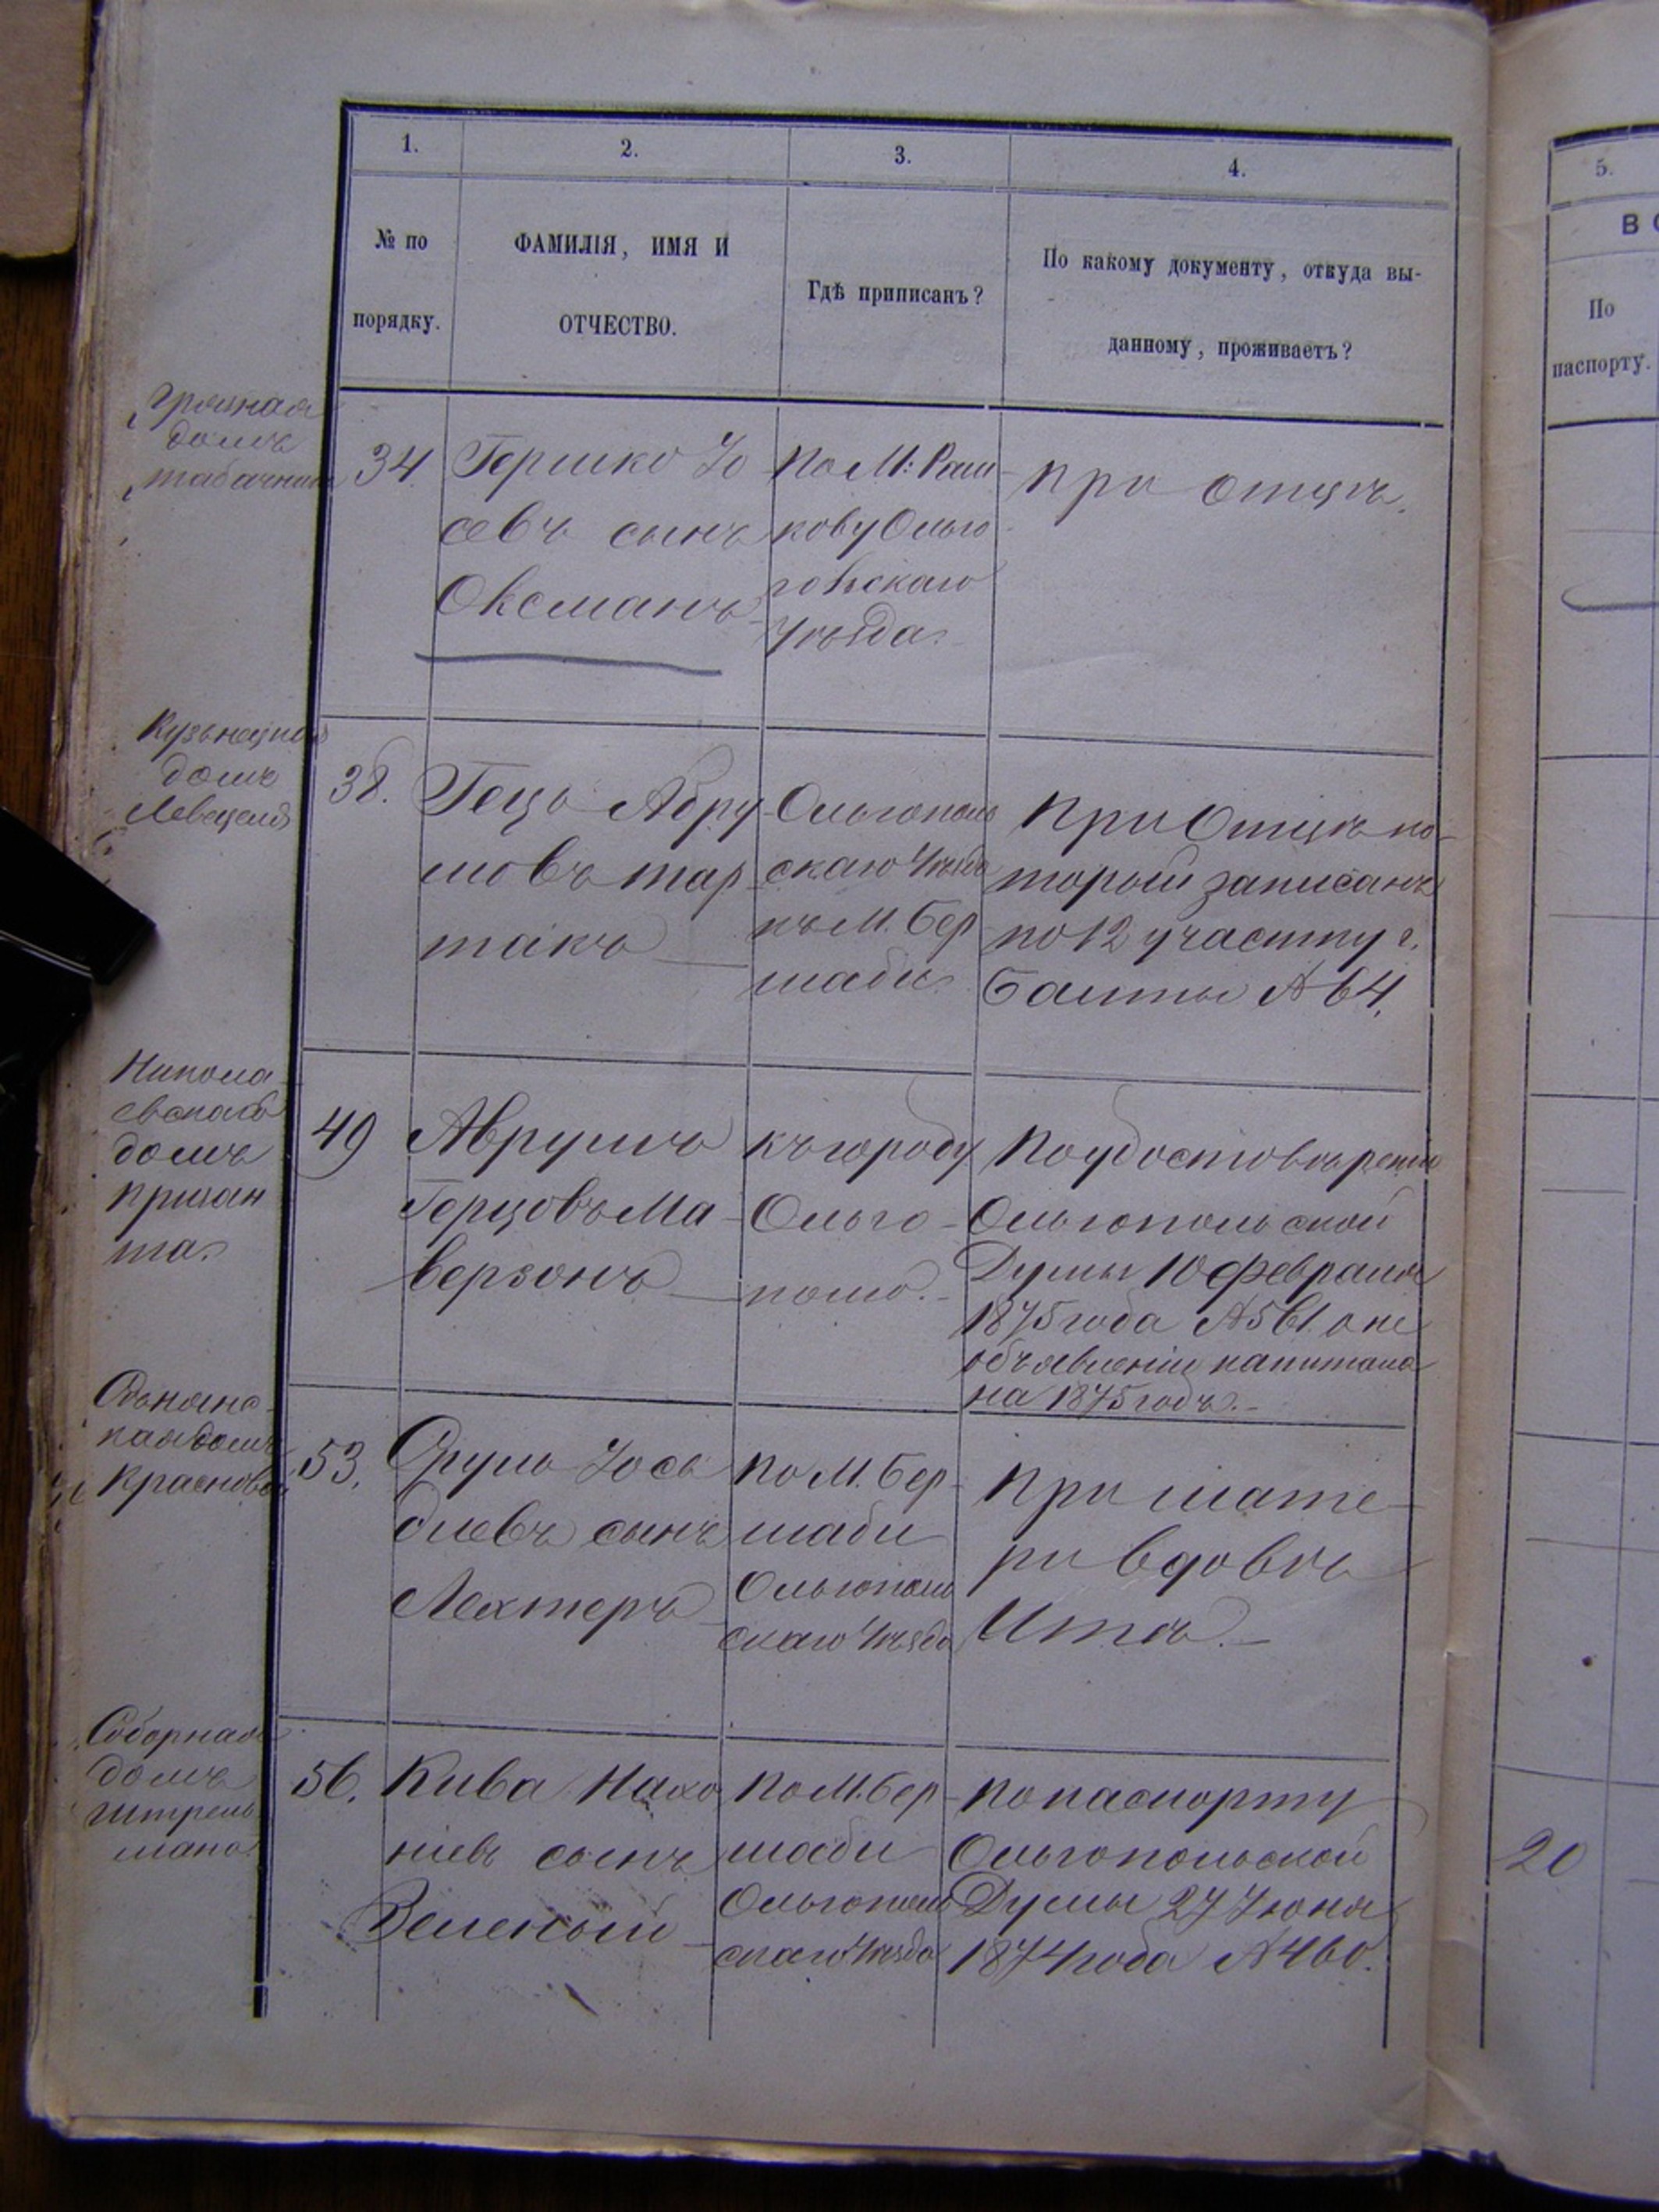 1.
2.
3.
4.
№ по
порядку.
ФАМИЛІЯ, ИМЯ И
ОТЧЕСТВО.
Гдѣ приписанъ?
По какому документу, откуда вы-
данному, проживаетъ?
домъ
34
Гершко Іо
севъ сынъ
Оксманъ
По М: Раш-
кову Ольго
Уѣзда.
При отцѣ.
домъ
38.
Гецъ Абру
мовъ тар
такъ
Ольгополь
скаго Уѣзда
къ М. Бер
шади.
При Отцѣ ко-
торый записанъ
по 12 участку г.
Балты № 64.
Никола
домъ
49
Аврумъ
Герцовъ Ма
верзонъ
къ городу
Ольго-
полю.
По удостовѣренію
Ольгопольской
Думы 10 февраля
1875 года № 561 о не
объявленіи капитала
на 1875 годъ.
53.
Сруль Іось
сынъ
Лехтеръ
По М. Бер-
шади
Ольгополь
скаго Уѣзда
При мате-
ри вдовѣ
Итѣ.
Соборная
домъ
Штрель
мана.
56.
Кива Нахо
сынъ
Зеленый
По М. Бер-
шади
Ольгополь
скаго Уѣзда
По паспорту
Ольгопольской
Думы 27 Іюня
1874 года № 460.
5.
По
паспорту.
20